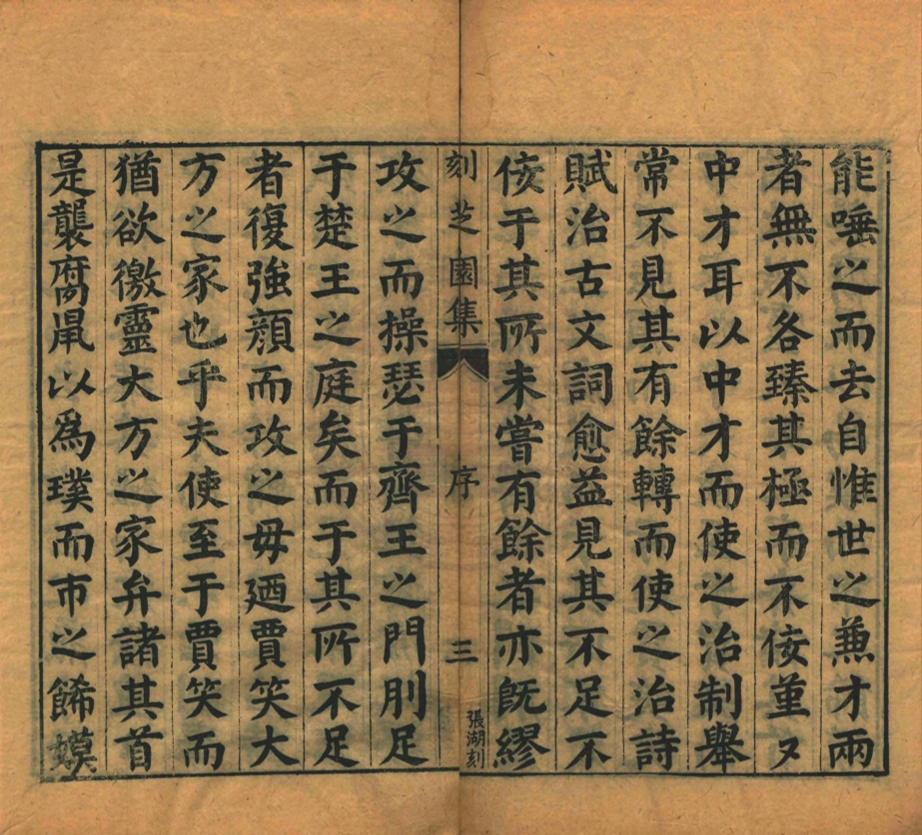 能唾之而去自惟世之兼才兩
者無不各臻其極而不侫重又
中才耳以中才而使之治制舉
常不見其有餘轉而使之治詩
賦治古文詞愈益見其不足不
侫于其所未嘗有餘者亦旣繆
刻芝園集 序 三 張湖刻
攻之而操瑟于齊王之門刖足
于楚王之庭矣而于其所不足
者復強顔而攻之毋廼賈笑大
方之家也乎夫使至于賈笑而
猶欲徼靈大方之家弁諸其首
是襲腐鼠以爲璞而市之餙嫫